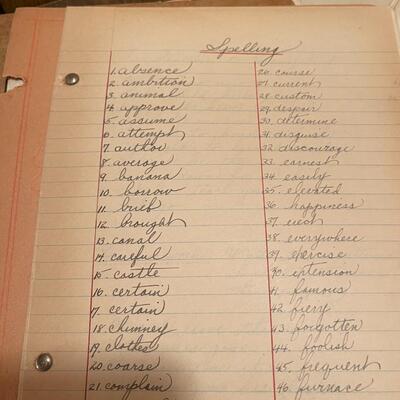 Spelling
1. absence
2. ambition
3. animal
4. approve
5. assume
6. attempt
7. author
8. average
9. banana
10. borrow
11. brief
12. brought
13. canal
14. careful
15. castle
16. certain
17. certain
18. chimney
19. clothes
20. coarse
21. complain
26. course
27. current
28. custom
29. despair
30. determine
31. disguise
32. discourage
33. earnest
34. easily
35. elevated
36. happiness
37.
38. everywhere
39. exercise
40. extension
41. famous
42. fiery
43. forgotten
44. foolish
45. frequent
46. furnace